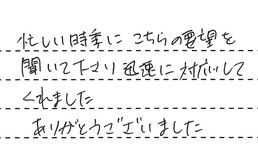 忙しい時季に こちらの要望を
聞いて下さり 迅速に対応して
くれました
ありがとうございました